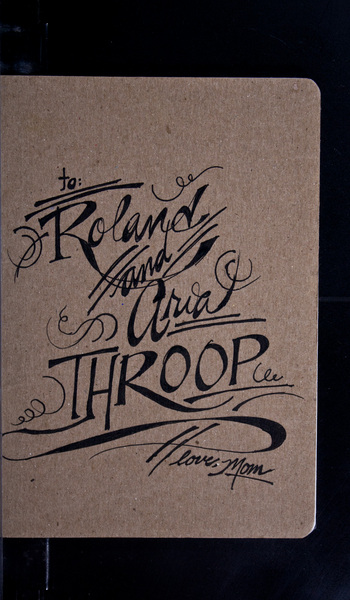 to:
Roland
and
Aria
THROOP
love, Mom